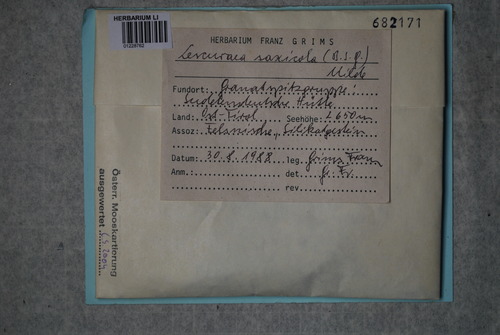 HERBARIUM LI
01228762
682171
HERBARIUM FRANZ GRIMS
Lescuraea saxicola (B.S.G.)
Milde
Fundort: Granatspitzgruppe:
Sudetendeutsche Hütte
Land: Ost-Tirol Seehöhe: 2650m
Assoz: Felsnische, Silikatgestein
Datum: 30.8.1988 leg. Grims Franz
Anm.: det. G. Fr.
rev.
Österr. Mooskartierung
ausgewertet 2004